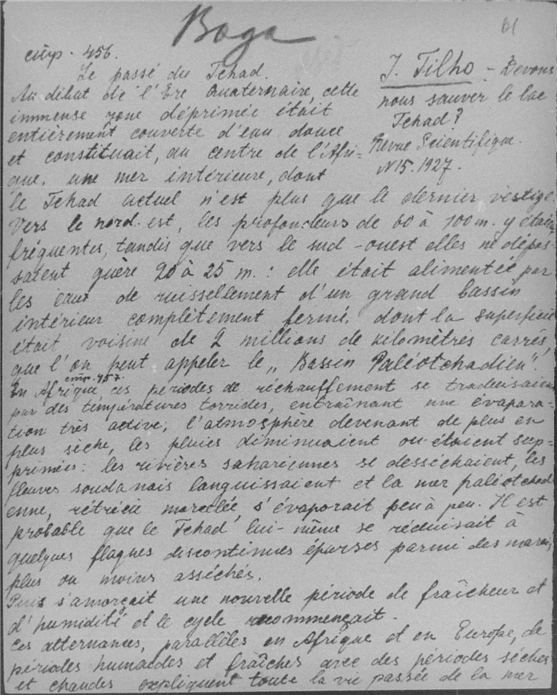 Вода
61
стр. 456.
Le passé du Tchad.
J. Tilho - Devons
nous sauver le lac
Tchad?
Revue Scientifique.
N 15. 1927.
Au début de l'Ere Quaternaire, cette
immense zone déprimée était
entièrement couverte d'eau douce
et constituait, au centre de l'Afri-
que. une mer intérieure, dont
le Tchad actuel n'est plus que le dernier vestige
Vers le nord-est, les profondeurs de 60 à 100 m. y étaient
fréquentes, tandis que vers le sud-ouest elles ne dépas
saient guère 20 à 25 m.: elle était alimentée par
les eaux de ruissellement d'un grand bassin
intérieur complètement fermé, dont la superficie
était voisine de 2 millions de kilomètres carrés
que l'on peut appeler le „Bassin Paléotchadien"
стр. 457.
En Afrique ces périodes de réchauffement se traduisaient
par des températures torrides, entraînant une évapora-
tion très active, l'atmosphère devenant de plus en
plus sèche, les pluies diminuaient ou étaient sup-
primées: les rivières sahariennes se desséchaient, les
fleuves soudanais languissaient et la mer paléotchadi
enne, rétrécie morcelée, s'évaporait peu à peu. Il est
probable que le Tchad lui-même se réduisait à
quelques flaques discontinues éparses parmi des marais
plus ou moins asséchés.
Puis s'amorçait une nouvelle période de fraîcheur et
d'humidité et le cycle recommençait.
Ces alternances, parallèles en Afrique et en Europe, de
périodes humides et fraîches avec des périodes sèches
et chaudes expliquent toute la vie passée de la mer